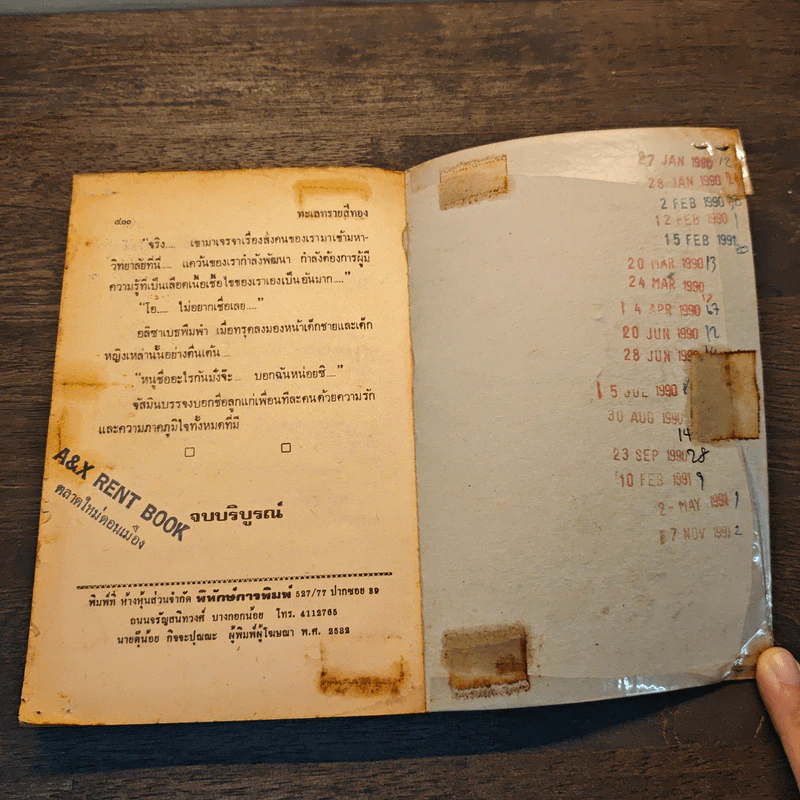 ๔๐๐
ทะเลทรายสีทอง
“จริง.... เขามาเจรจาเรื่องส่งคนของเรามาเข้ามหา-
วิทยาลัยที่นี่.... แคว้นของเรากำลังพัฒนา กำลังต้องการผู้มี
ความรู้ที่เป็นเลือดเนื้อเชื้อไขของเราเองเป็นอันมาก....”
“โอ.... ไม่อยากเชื่อเลย....”
อลิซาเบธพึมพำ เมื่อทรุดลงมองหน้าเด็กชายและเด็ก
หญิงเหล่านั้นอย่างตื่นเต้น....
“หนูชื่ออะไรกันมั่งจ๊ะ.... บอกฉันหน่อยซิ....”
จัสมินบรรจงบอกชื่อลูกแก่เพื่อนทีละคนด้วยความรัก
และความภาคภูมิใจทั้งหมดที่มี
A&X RENT BOOK
ตลาดใหม่ดอนเมือง
จบบริบูรณ์
พิมพ์ที่ ห้างหุ้นส่วนจำกัด พิทักษ์การพิมพ์ 527/77 ปากซอย 39
ถนนจรัญสนิทวงศ์ บางกอกน้อย โทร. 4112765
นายตุ๊น้อย กิจจะปุณณะ ผู้พิมพ์ผู้โฆษณา พ.ศ. 2532
27 JAN 1990 12
28 JAN 1990
2 FEB 1990
12 FEB 1990 1
15 FEB 1991 20
20 MAR 1990 13
24 MAR 1990
12
4 APR 1990 17
20 JUN 1990 12
28 JUN 1990
5 JUL 1990
30 AUG 1990
14
23 SEP 1990 28
10 FEB 1991 9
2 - MAY 1991 1
7 NOV 1991 2